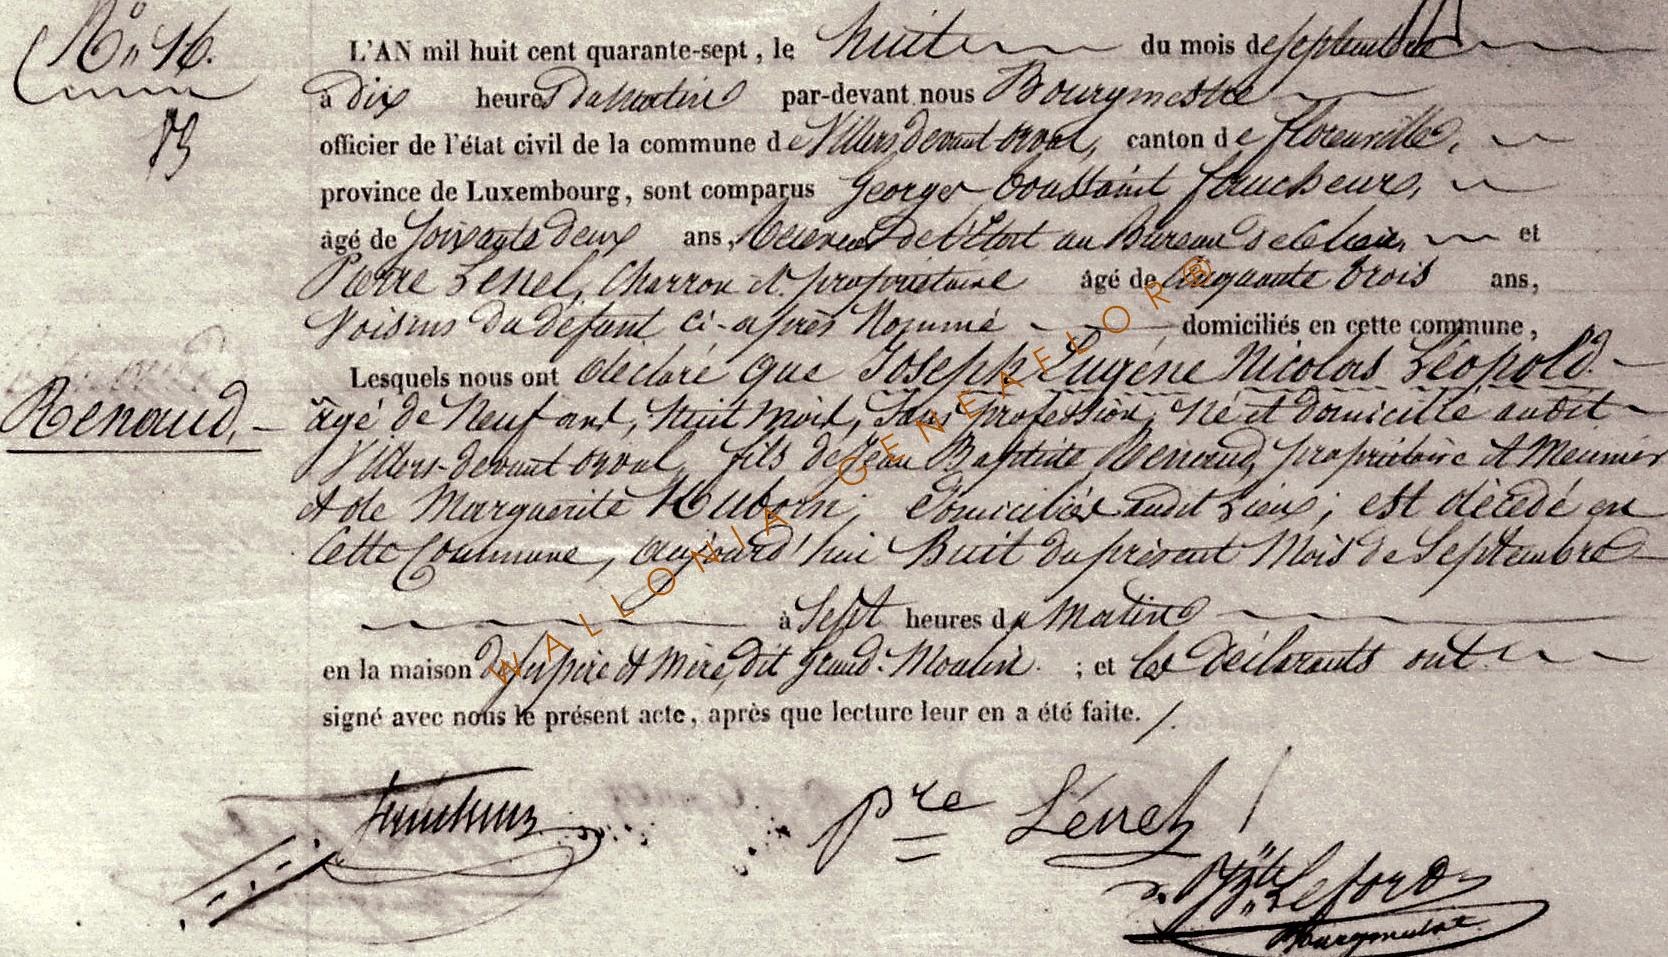 N° 16.
L'AN mil huit cent quarante-sept, le huit du mois de septembre
à dix heures du matin par-devant nous Bourgmestre
officier de l'état civil de la commune de Villers devant orval, canton de florenville,
province de Luxembourg, sont comparus George toussaint faucheur,
âgé de soixante deux ans, de l'Etat au Bureau de et
Pierre Lenel, Charron et propriétaire âgé de cinquante trois ans,
Voisins du défunt ci-après Nommé domiciliés en cette commune,
Lesquels nous ont déclaré que Joseph Eugène Nicolas Léopold
Renaud,
âgé de Neuf ans, huit mois, sans profession, Né et domicilié audit
Villers-devant orval, fils de Jean Baptiste Renaud, propriétaire et Meunier
et de Marguerite domiciliés audit Lieu; est décédé en
cette Commune, aujourd'hui Huit du présent Mois de Septembre
à Sept heures du Matin
en la maison de ses père et Mère, dit grand-Moulin. ; et les déclarants ont
signé avec nous le présent acte, après que lecture leur en a été faite./.
Pre Lenel
Lefort
Bourgmestre
WALLONIA - GENEAFLOR®